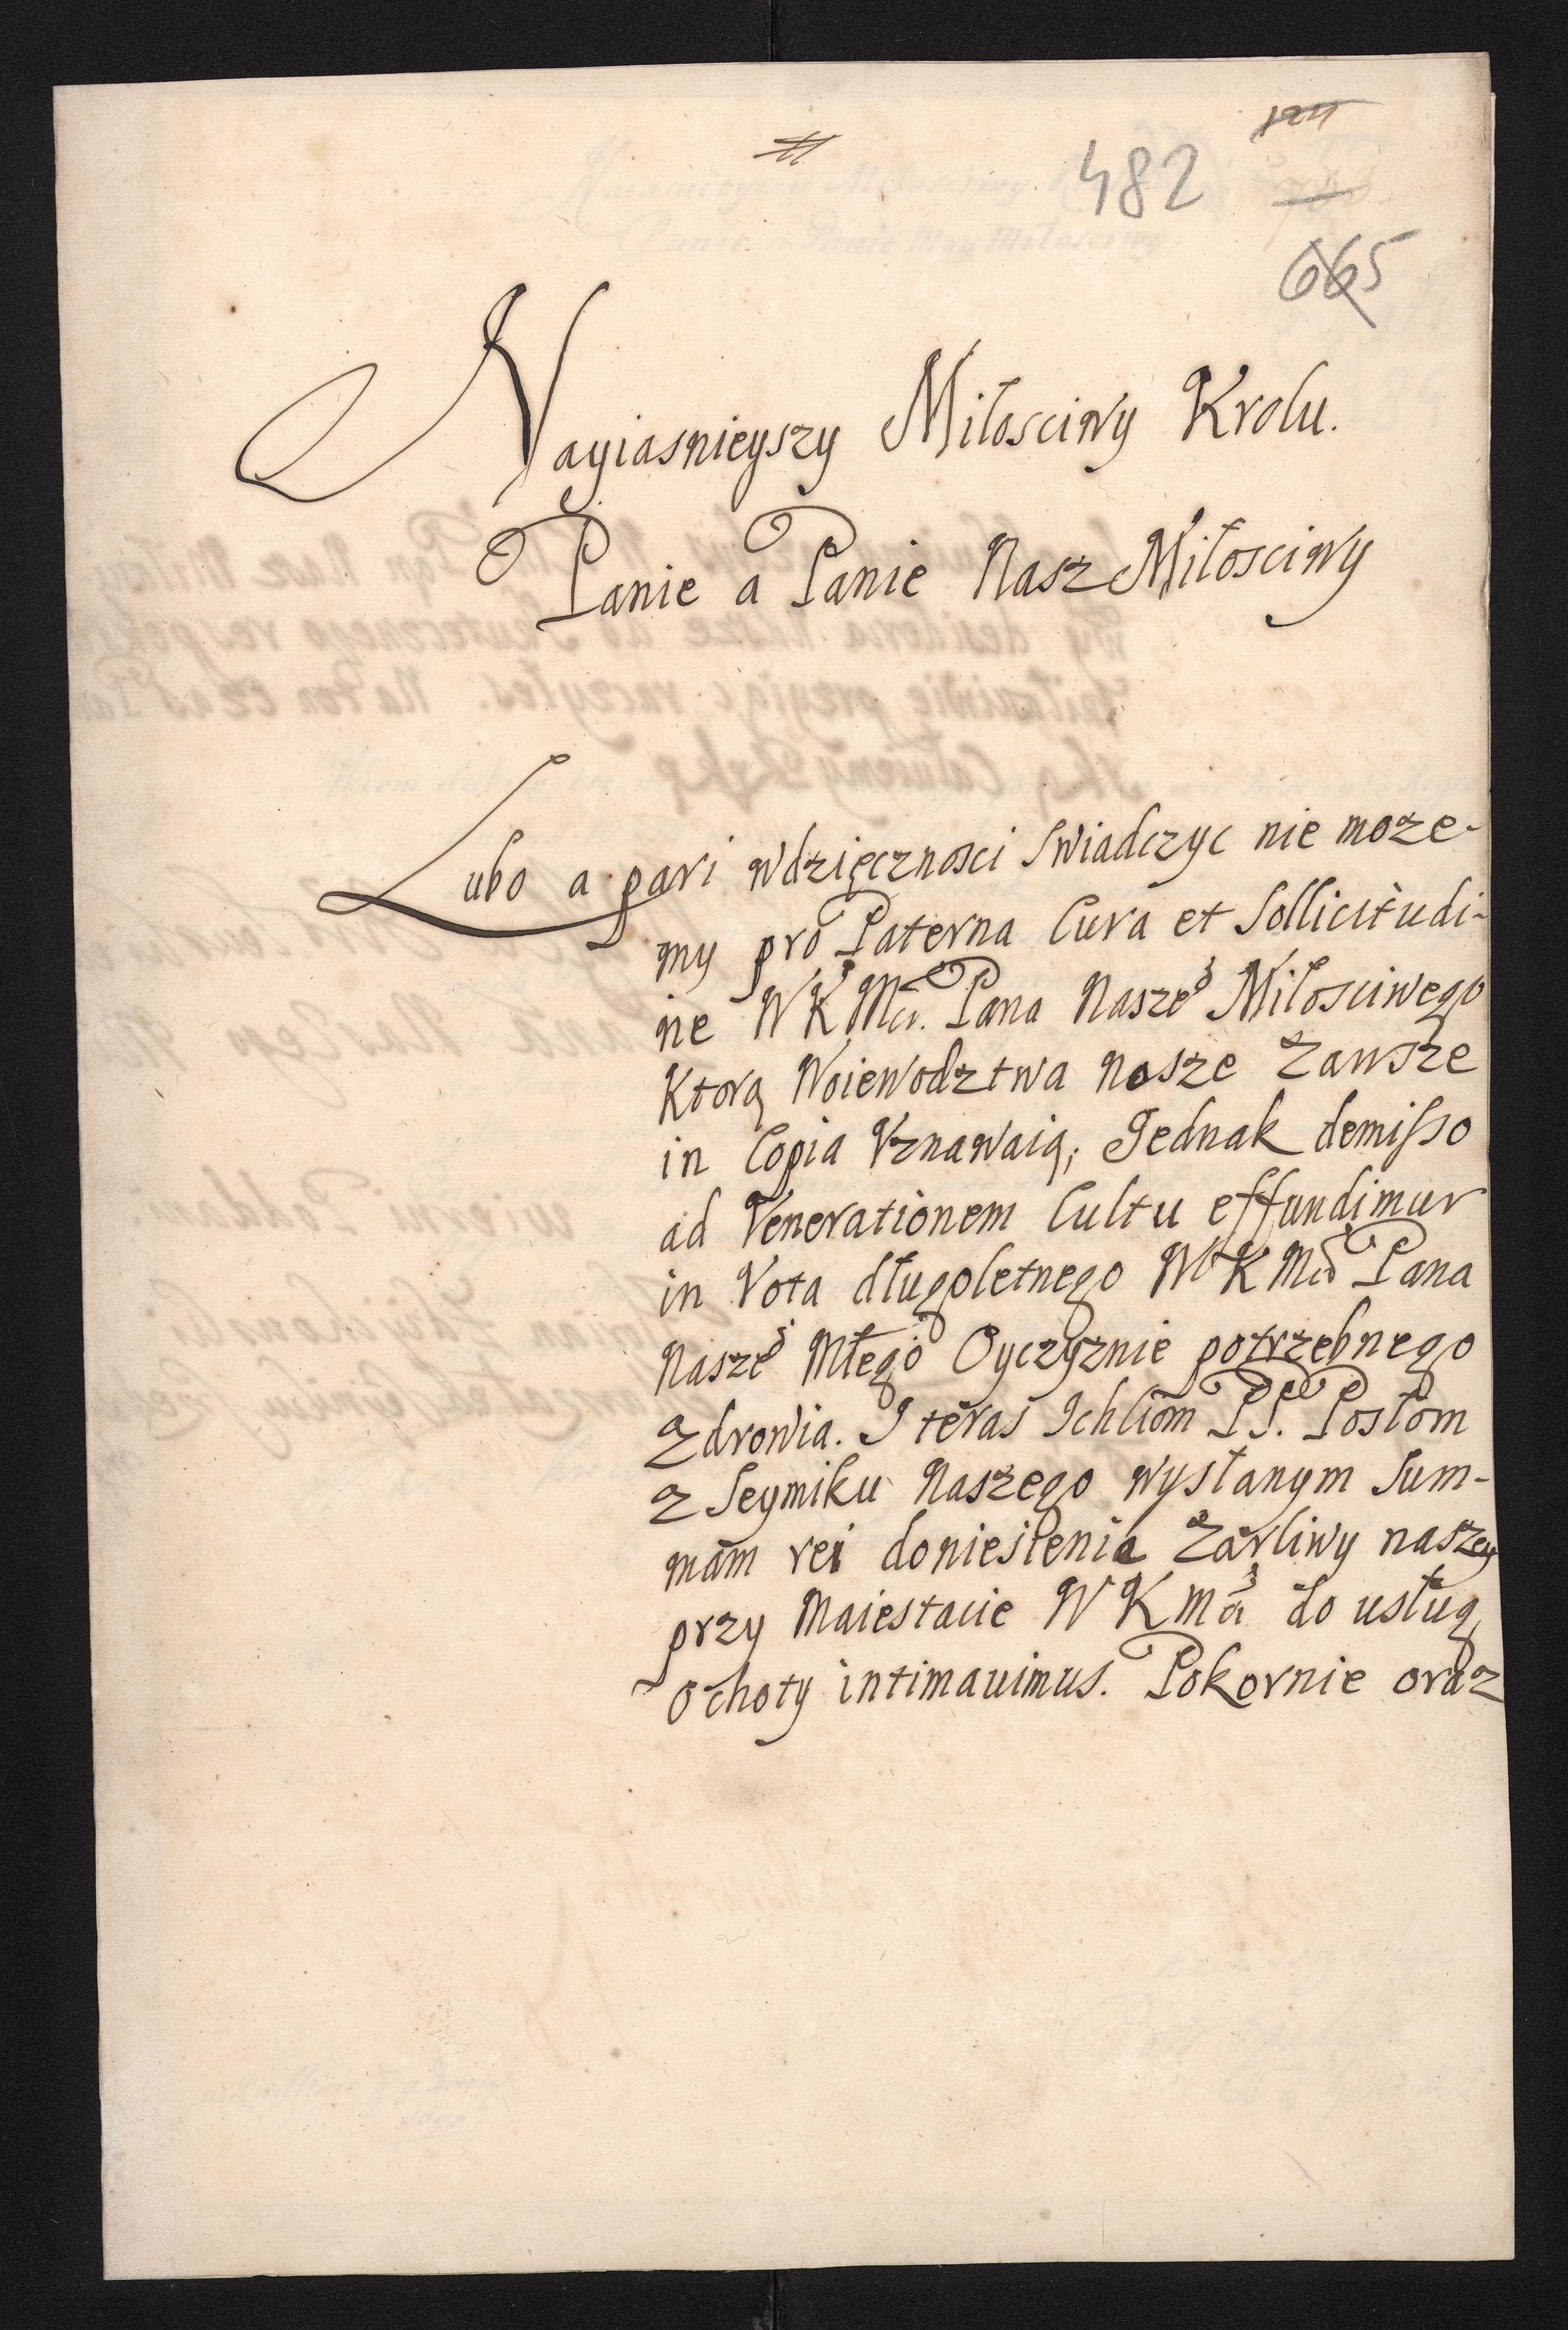 482
665
Nayiasnieyszy Miłosciwy Krolu.
Panie a Panie Nasz Miłosciwy
Lubo a pari wdzięcznosci Swiadczyc nie może-
my pro Paterna Cura et Sollicitudi-
ne W K Mci. Pana Nasze° Miłosciwego
Ktorą Woiewodztwa Nasze Zawsze
in Copia Vznawaią; Jednak demisso
ad Venerationem Cultu effundimur
in Vota długoletnego W K Mci Pana
Nasze° Młego Oyczyznie potrzebnego
Zdrowia. I teras Ichmom PP. Posłom
z Seymiku Naszego wysłanym Sum-
mam rei doniesienia Zarliwy naszey
przy Maiestacie W K Mci do usług
ochoty intimauimus. Pokornie oraz